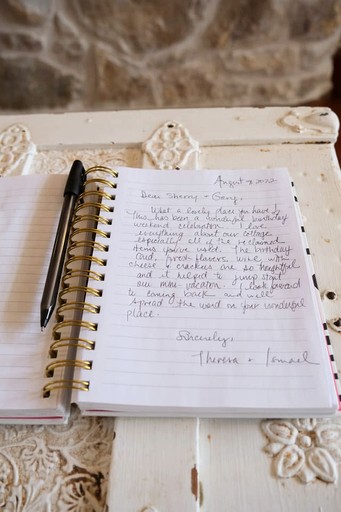 August 2022
Dear Sherry + Gary,
What a lovely place you have!
This has been a wonderful birthday
weekend celebration. I love
everything about our cottage
especially all of the reclaimed
items you've used. The birthday
card, fresh flowers, wine, with
cheese & crackers are so thoughtful
and it helped to jump start
our mini vacation. I look forward
to coming back and will
spread the word on your wonderful
place.
Sincerely,
Theresa + Ismael